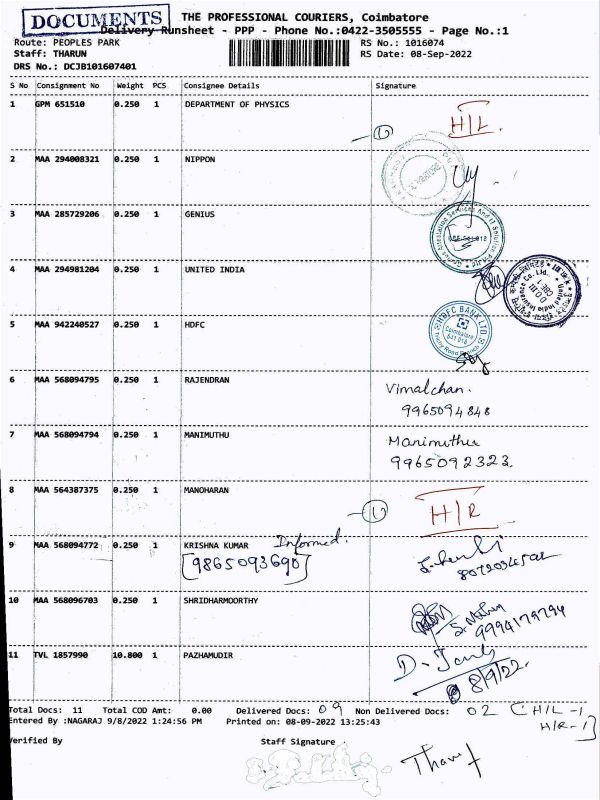 DOCUMENTS
THE PROFESSIONAL COURIERS, Coimbatore
Delivery Runsheet - PPP - Phone No.:0422-3505555 - Page No.:1
Route: PEOPLES PARK
RS No.: 1016074
Staff: THARUN
RS Date: 08-Sep-2022
DRS No.: DCJB101607401
S No Consignment No Weight PCS Consignee Details Signature
1 GPM 651510 0.250 1 DEPARTMENT OF PHYSICS
1 H/L
2 MAA 294008321 0.250 1 NIPPON
3 MAA 285729206 0.250 1 GENIUS
4 MAA 294981204 0.250 1 UNITED INDIA
United India Insurance Co. Ltd.
5 MAA 942240527 0.250 1 HDFC
HDFC BANK LTD
Coimbatore
641 018
6 MAA 568094795 0.250 1 RAJENDRAN
Vimalchan.
9965094848
7 MAA 568094794 0.250 1 MANIMUTHU
Manimuthu
9965092323.
8 MAA 564387375 0.250 1 MANOHARAN
1 H/R
9 MAA 568094772 0.250 1 KRISHNA KUMAR Informed.
[9865093690]
10 MAA 568096703 0.250 1 SHRIDHARMOORTHY
9994179794
11 TVL 1857990 10.800 1 PAZHAMUDIR
8/9/22.
Total Docs: 11 Total COD Amt: 0.00 Delivered Docs: 09 Non Delivered Docs: 02 [H/L-1
H/R-1]
Entered By :NAGARAJ 9/8/2022 1:24:56 PM Printed on: 08-09-2022 13:25:43
Verified By Staff Signature